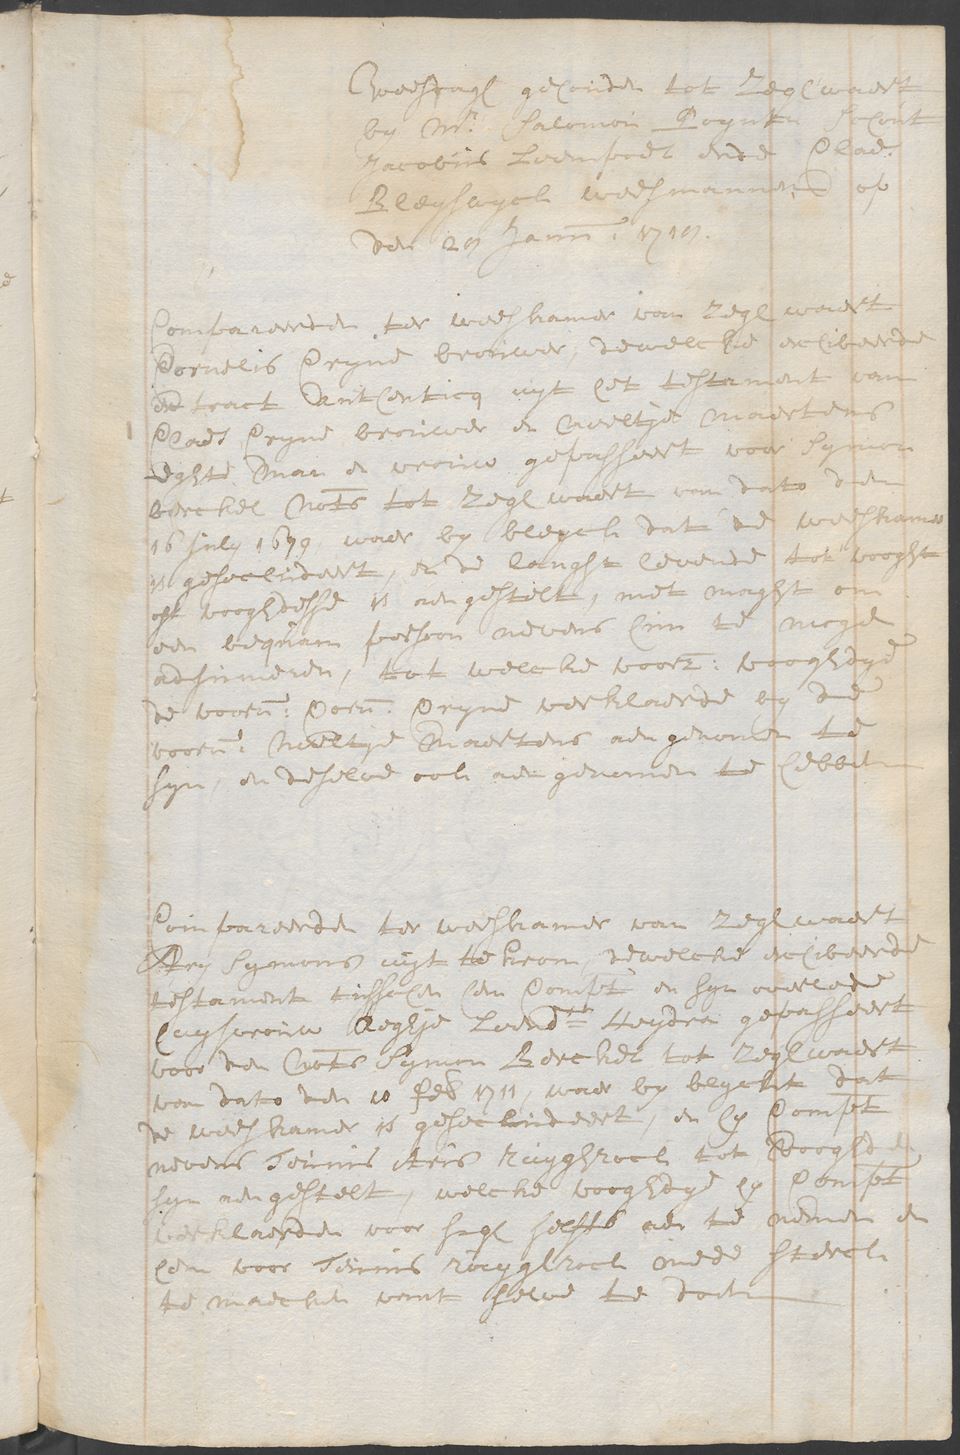 Weesdagh gehouden tot Zeghwaert
by Mr. Salomon Poynts Schout
Jacobus Leempoel ende Claes
Bleyswyck weesmannen op
den 29 Janu: 1719.
Compareerden ter weeskamer van Zeghwaert
Cornelis Cryne brouwer, dewelche exhibeerde
extract autenticq uyt het testament van
Claes Cryne brouwer en Neeltje Maertens
eghte man en vrouw gepasseert voor Symon
berckel Nots tot Zeghwaert van dato den
16 July 1699, waer by bleyck dat de weeskamer
is gesecludeert, en de langst levende tot vooght
oft vooghdesse is aengestelt, met maght om
een bequam persoon nevens hun te moge
adsumeren, tot welcke voorz: vooghdye
de voorn: Corn: Cryne verklaerde by de
voorn: Neeltje Maertens aengenomen te
syn, en deselve ooch aengenomen te hebben
Compareerden ter weeskamer van Zeghwaert
Ary Symons uyt te krom, dewelche exhibeerde
testament tusschen hem Compt en syn overlede
huysvrouw Aeghje Leendrts Heydra gepasseert
voor den Nots Symon Berckel tot Zeghwaert
van dato den 10 feb 1711, waer by blyckt dat
de weeskamer is gesecludeert, en hy Compt
nevens Teunis Aris ruyghrock tot vooghden
syn aengestelt, welcke vooghdye hy Compt
verklaerden voor sigh selffs aen te nemen en
hem voor Teunis ruyghrock mede sterck
te maecken vant selve te doen